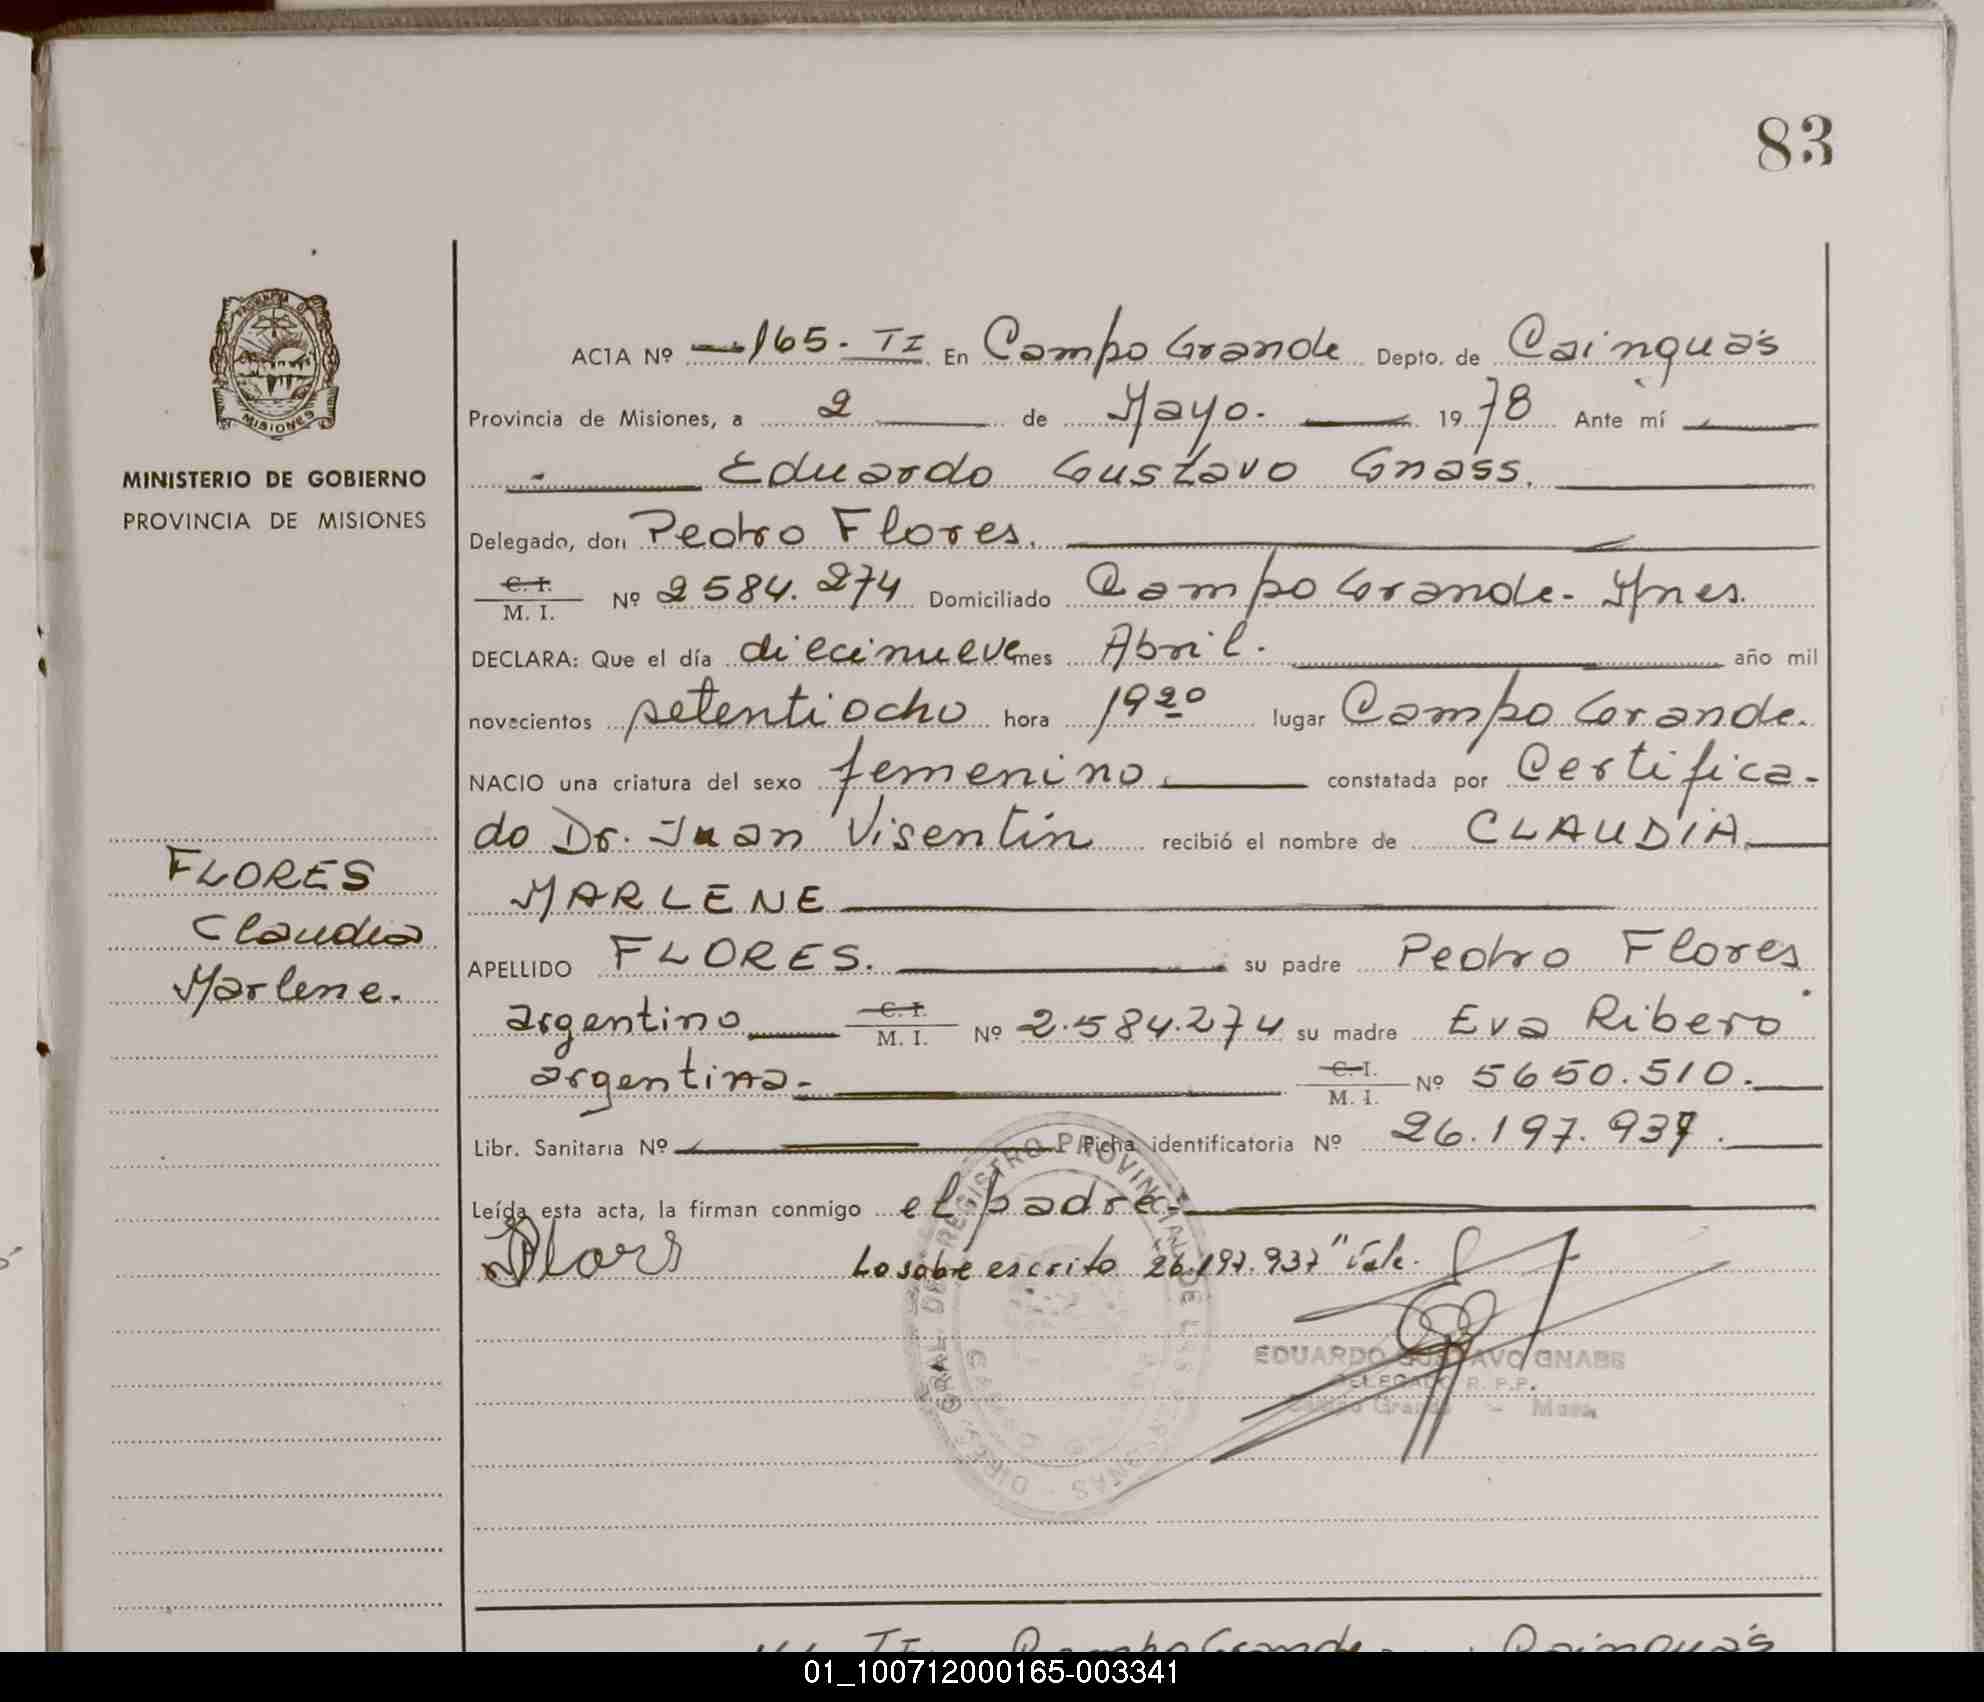 83
PROVINCIA DE
MISIONES
MINISTERIO DE GOBIERNO
PROVINCIA DE MISIONES
FLORES
Claudia
Marlene.
ACTA Nº 165. II En Campo Grande Depto. de Cainguás
Provincia de Misiones, a 2 de Mayo. 1978 Ante mí
Eduardo Gustavo Gnass.
Delegado, don Pedro Flores.
C. I.
M. I. Nº 2584.274 Domiciliado Campo Grande. Mnes.
DECLARA: Que el día diecinueve mes Abril. año mil
novecientos setentiocho hora 19 20 lugar Campo Grande.
NACIO una criatura del sexo femenino. constatada por Certifica-
do Dr. Juan Visentín recibió el nombre de CLAUDIA
MARLENE
APELLIDO FLORES. su padre Pedro Flores
argentino C. I.
M. I. Nº 2.584.274 su madre Eva Ribero
argentina- C. I.
M. I. Nº 5650.510.
Libr. Sanitaria Nº Ficha identificatoria Nº 26.197.937.
Leída esta acta, la firman conmigo el padre.
Flors Lo sobre escrito 26.197.937" Vale.
DIREC. GRAL. DEL REGISTRO PROVINCIAL DE LAS PERSONAS
EDUARDO GUSTAVO GNASS
DELEGADO R. P. P.
Campo Grande - Mnes.
II Campo Grande Cainguás
01_100712000165-003341